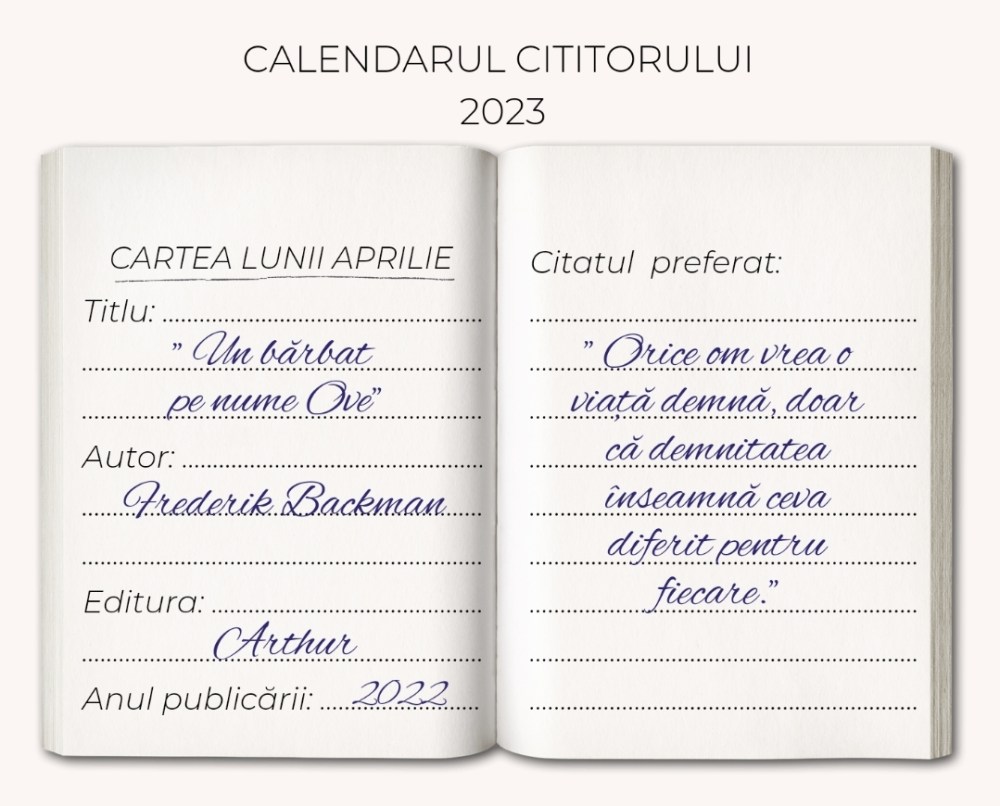 CALENDARUL CITITORULUI
2023
CARTEA LUNII APRILIE
Titlu:
” Un bărbat
pe nume Ove”
Autor:
Frederik Backman
Editura:
Arthur
Anul publicării: 2022
Citatul preferat:
” Orice om vrea o
viață demnă, doar
că demnitatea
înseamnă ceva
diferit pentru
fiecare.”